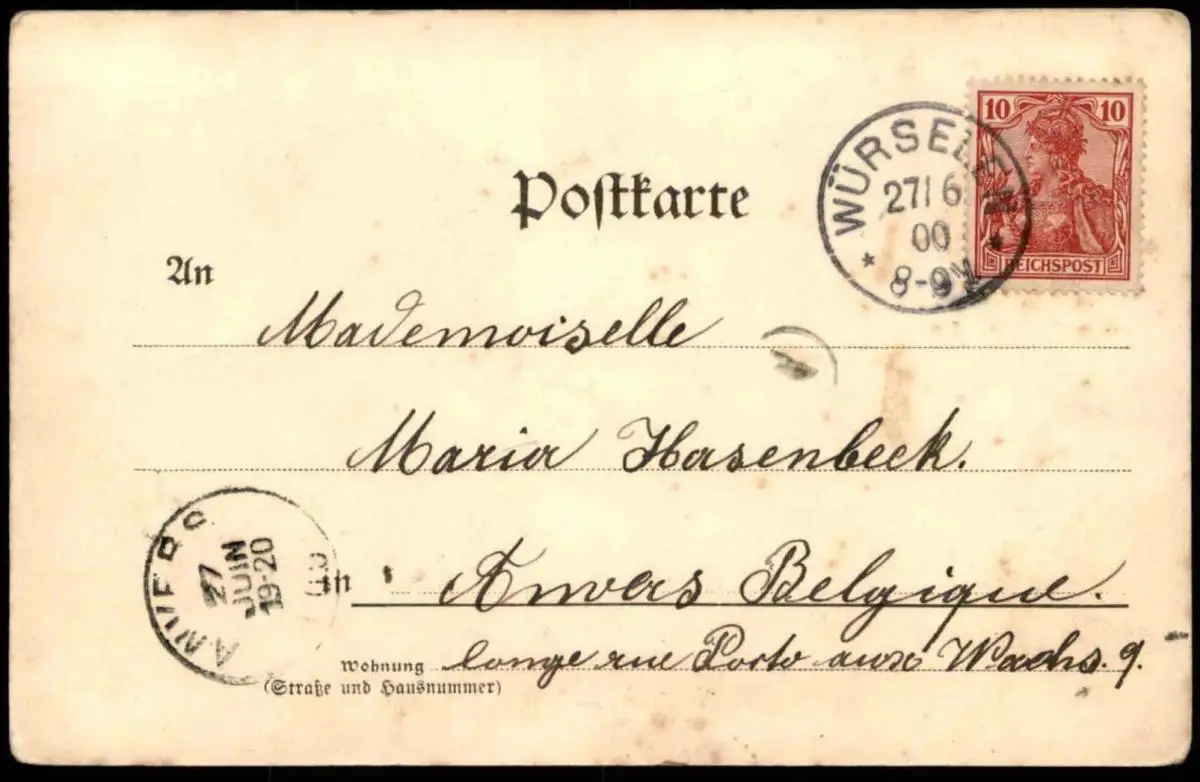 10 10
REICHSPOST
WÜRSELEN
27/ 6
00
8-9V
Postkarte
An
Mademoiselle
Maria Hasenbeek.
in Anvers Belgique.
ANVERS
27
JUIN
19-20
Wohnung longe rue Porto aux Wachs. 9.
(Straße und Hausnummer)